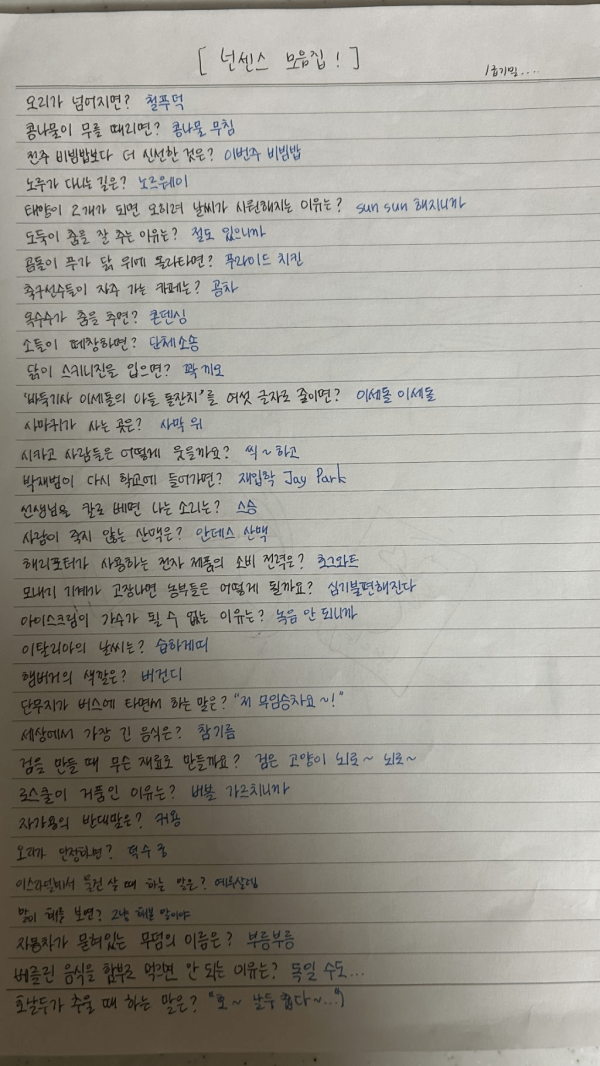 [ 넌센스 모음집! ]
1급기밀....
오리가 넘어지면? 철푸덕
콩나물이 무를 때리면? 콩나물 무침
전주 비빔밥보다 더 신선한 것은? 이번주 비빔밥
노루가 다니는 길은? 노르웨이
태양이 2개가 되면 오히려 날씨가 시원해지는 이유는? sun sun 해지니까
도둑이 춤을 잘 추는 이유는? 절도 있으니까
곰돌이 푸가 닭 위에 올라타면? 푸라이드 치킨
축구선수들이 자주 가는 카페는? 공차
옥수수가 춤을 추면? 콘덴싱
소들이 떼창하면? 단체소송
닭이 스키니진을 입으면? 꽉 끼오
'바둑기사 이세돌의 아들 돌잔치'를 여섯 글자로 줄이면? 이세돌 이세돌
사마귀가 사는 곳은? 사막 위
시카고 사람들은 어떻게 웃을까요? 씩~하고
박재범이 다시 학교에 들어가면? 재입학 Jay Park
선생님을 칼로 베면 나는 소리는? 스승
사람이 죽지 않는 산맥은? 안데스 산맥
해리포터가 사용하는 전자 제품의 소비 전력은? 호그와트
모내기 기계가 고장나면 농부들은 어떻게 될까요? 심기불편해진다
아이스크림이 가수가 될 수 없는 이유는? 녹음 안 되니까
이탈리아의 날씨는? 습하게띠
햄버거의 색깔은? 버건디
단무지가 버스에 타면서 하는 말은? "저 무임승차요~!"
세상에서 가장 긴 음식은? 참기름
검을 만들 때 무슨 재료로 만들까요? 검은 고양이 뇌로~ 뇌로~
로스쿨이 거품인 이유는? 버블 가르치니까
자가용의 반대말은? 커용
오리가 단정하면? 덕수 궁
이스라엘에서 물건 살 때 하는 말은? 예루살렘
말이 해를 보면? 그냥 해본 말이야
자동차가 묻혀있는 무덤의 이름은? 부릉부릉
베를린 음식을 함부로 먹으면 안 되는 이유는? 독일 수도...
호날두가 추울 때 하는 말은? "호~ 날두 춥다~..."